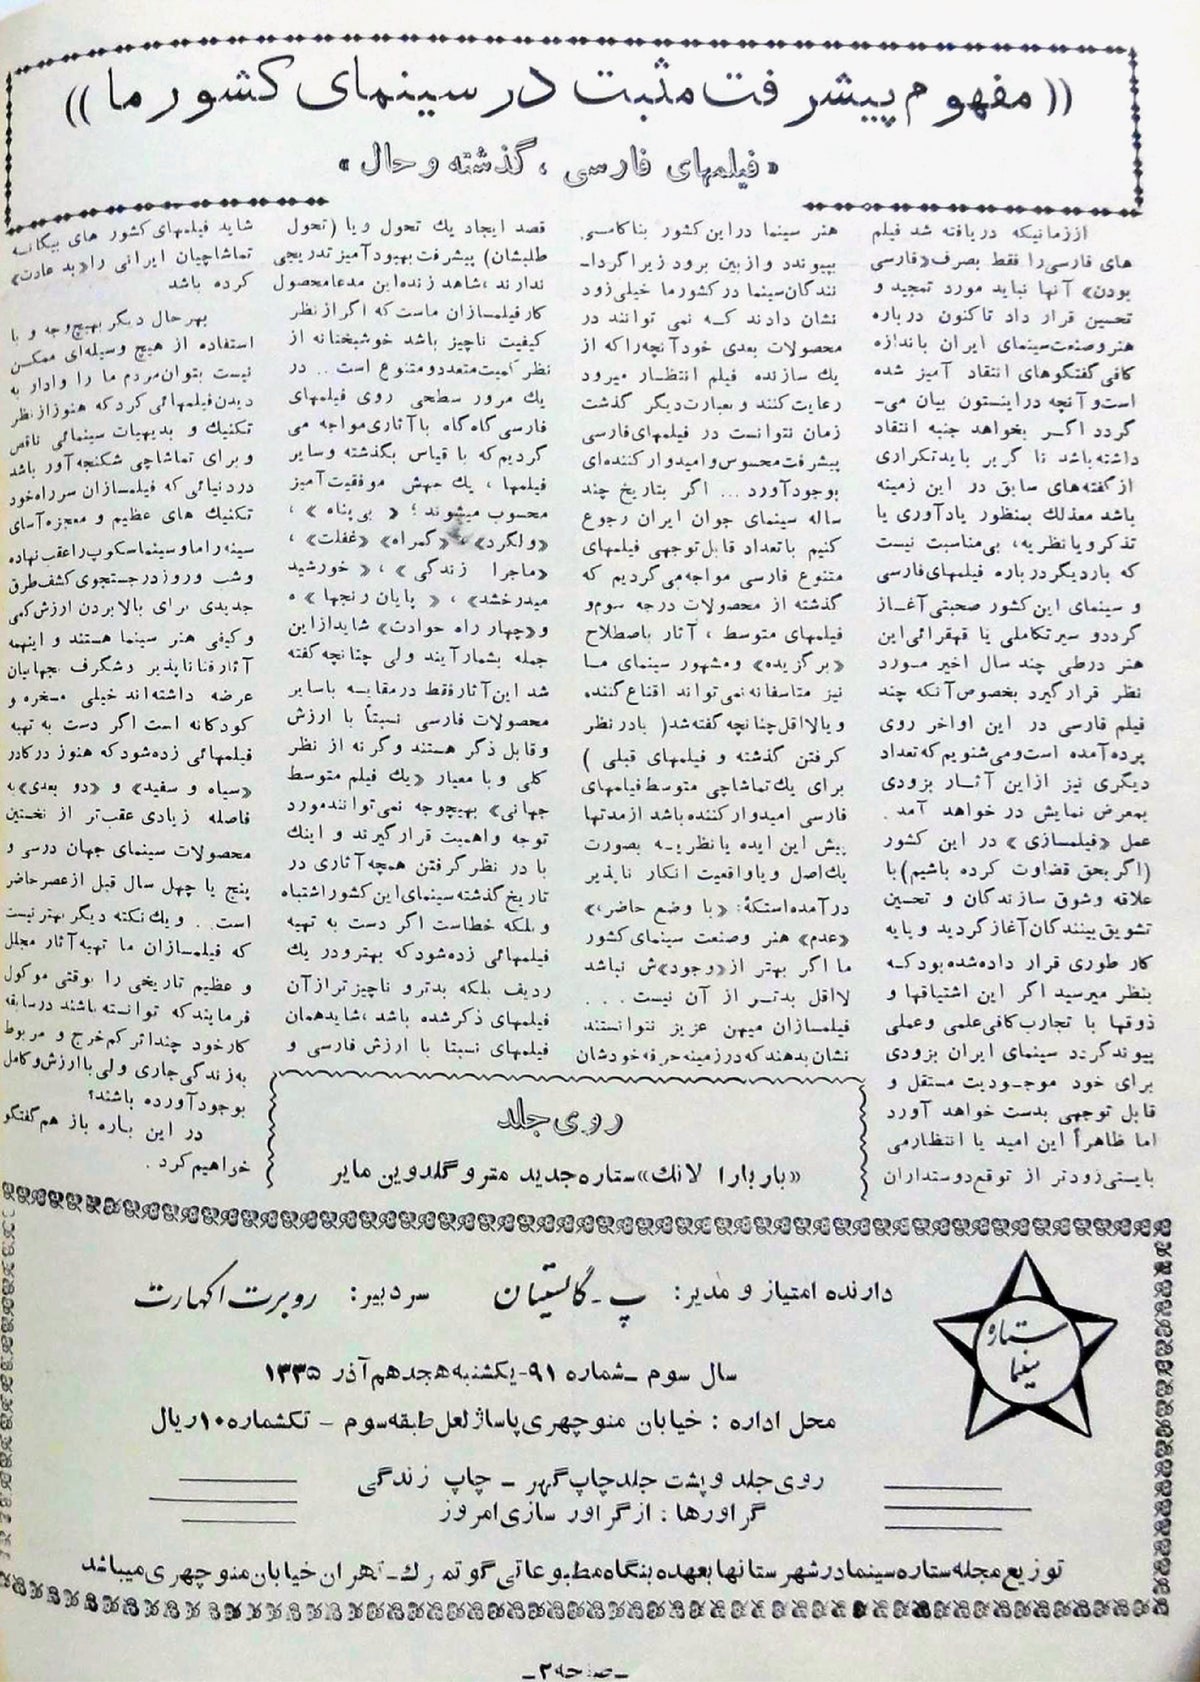 (( مفهوم پیشرفت مثبت در سینمای کشور ما ))
«فیلمهای فارسی ، گذشته و حال»
اززمانیکه دریافته شد فیلم
های فارسی را فقط بصرف «فارسی
بودن» آنها نباید مورد تمجید و
تحسین قرار داد تاکنون درباره
هنر و صنعت سینمای ایران باندازه
کافی گفتگوهای انتقاد آمیز شده
است و آنچه در اینستون بیان می-
گردد اگر بخواهد جنبه انتقاد
داشته باشد ناگریر باید تکراری
از گفته‌های سابق در این زمینه
باشد معذلك بمنظور یادآوری یا
تذکر و یا نظریه، بی‌مناسبت نیست
که باردیگر درباره فیلمهای فارسی
و سینمای این کشور صحبتی آغاز
گردد و سیر تکاملی یا قهقرائی این
هنر درطی چند سال اخیر مورد
نظر قرار گیرد بخصوص آنکه چند
فیلم فارسی در این اواخر روی
پرده آمده است و می‌شنویم که تعداد
دیگری نیز از این آثار بزودی
بمعرض نمایش در خواهد آمد .
عمل «فیلمسازی» در این کشور
(اگر بحق قضاوت کرده باشیم) با
علاقه و شوق سازندگان و تحسین
تشویق بینندگان آغاز گردید و پایه
کار طوری قرار داده شده بود که
بنظر میرسید اگر این اشتیاقها و
ذوقها با تجارب کافی علمی و عملی
پیوند گردد سینمای ایران بزودی
برای خود موجودیت مستقل و
قابل توجهی بدست خواهد آورد
اما ظاهراً این امید یا انتظار می
بایستی زودتر از توقع دوستداران
هنر سینما در این کشور بناکامی
بپیوندد و از بین برود زیرا گردا-
نندگان سینما در کشور ما خیلی زود
نشان دادند که نمی توانند در
محصولات بعدی خود آنچه را که از
یك سازنده فیلم انتظار میرود
رعایت کنند و بعبارت دیگر گذشت
زمان نتوانست در فیلمهای فارسی
پیشرفت محسوس و امیدوار کننده‌ای
بوجود آورد ... اگر بتاریخ چند
ساله سینمای جوان ایران رجوع
کنیم با تعداد قابل توجهی فیلمهای
متنوع فارسی مواجه می‌گردیم که
گذشته از محصولات درجه سوم و
فیلمهای متوسط ، آثار باصطلاح
«برگزیده» و مشهور سینمای ما
نیز متاسفانه نمی‌تواند اقناع کننده
و یا لااقل چنانچه گفته شد ( با در نظر
گرفتن گذشته و فیلمهای قبلی )
برای یك تماشاچی متوسط فیلمهای
فارسی امیدوار کننده باشد از مدتها
پیش این ایده یا نظریه بصورت
یك اصل و یا واقعیت انکار ناپذیر
در آمده استکه: «با وضع حاضر،
«عدم» هنر و صنعت سینمای کشور
ما اگر بهتر از «وجود»ش نباشد
لااقل بدتر از آن نیست . . .
فیلمسازان میهن عزیز نتوانستند
نشان بدهند که در زمینه حرفه خودشان
قصد ایجاد یك تحول و یا (تحول
طلبشان) پیشرفت بهبود آمیز تدریجی
ندارند ، شاهد زنده این مدعا محصول
کار فیلمسازان ماست که اگر از نظر
کیفیت ناچیز باشد خوشبختانه از
نظر کمیت متعدد و متنوع است .. در
یك مرور سطحی روی فیلمهای
فارسی گاه گاه با آثاری مواجه می
گردیم که با قیاس بگذشته و سایر
فیلمها ، یك جهش موفقیت آمیز
محسوب میشوند ؛ « بی پناه » ،
«ولگرد» ، «گمراه» «غفلت» ،
«ماجرا زندگی» ، « خورشید
میدرخشد» ، « پایان رنجها »
و «چهار راه حوادث» شاید از این
جمله بشمار آیند ولی چنانچه گفته
شد این آثار فقط در مقایسه با سایر
محصولات فارسی نسبتاً با ارزش
و قابل ذکر هستند و گرنه از نظر
کلی و با معیار «یك فیلم متوسط
جهانی» بهیچوجه نمی توانند مورد
توجه و اهمیت قرار گیرند و اینك
با در نظر گرفتن همچه آثاری در
تاریخ گذشته سینمای این کشور اشتباه
و بلکه خطاست اگر دست به تهیه
فیلمهائی زده شود که بهتر و در یك
ردیف بلکه بدتر و ناچیز تر از آن
فیلمهای ذکر شده باشد ، شاید همان
فیلمهای نسبتا با ارزش فارسی و
شاید فیلمهای کشور های بیگانه
تماشاچیان ایرانی را «بد عادت»
کرده باشد
بهر حال دیگر بهیچوجه و با
استفاده از هیچ وسیله‌ای ممکن
نیست بتوان مردم ما را وادار به
دیدن فیلمهائی کرد که هنوز از نظر
تکنیك و بدیهیات سینمائی ناقص
و برای تماشاچی شکنجه آور باشد
در دنیائی که فیلمسازان سر راه خود
تکنیك های عظیم و معجزه آسای
سینه راما و سینما سکوپ را عقب نهاده
و شب و روز در جستجوی کشف طرق
جدیدی برای بالا بردن ارزش کمی
و کیفی هنر سینما هستند و اینهمه
آثار فنا ناپذیر و شگرف بجهانیان
عرضه داشته‌اند خیلی مسخره و
کودکانه است اگر دست به تهیه
فیلمهائی زده شود که هنوز در کادر
«سیاه و سفید» و «دو بعدی» به
فاصله زیادی عقب‌تر از نخستین
محصولات سینمای جهان در سی و
پنج یا چهل سال قبل از عصر حاضر
است . . و یك نکته دیگر بهتر نیست
که فیلمسازان ما تهیه آثار مجلل
و عظیم تاریخی را بوقتی موکول
فرمایند که توانسته باشند در سابقه
کار خود چند اثر کم خرج و مربوط
به زندگی جاری ولی با ارزش و کامل
بوجود آورده باشند؟
در این باره باز هم گفتگو
خواهیم کرد .
روی جلد
«باربارا لانك» ستاره جدید مترو گلدوین مایر
ستاره
سینما
دارنده امتیاز و مدیر: پ - گالستیان سردبیر: روبرت اکهارت
سال سوم - شماره ۹۱ - یکشنبه هجدهم آذر ۱۳۳۵
محل اداره : خیابان منوچهری پاساژ لعل طبقه سوم - تکشماره ۱۰ ریال
روی جلد و پشت جلد چاپ گهر - چاپ زندگی
گراورها : از گراور سازی امروز
توزیع مجله ستاره سینما در شهرستانها بعهده بنگاه مطبوعاتی گوتمبرك - تهران خیابان منوچهری میباشد
- صفحه ۲ -